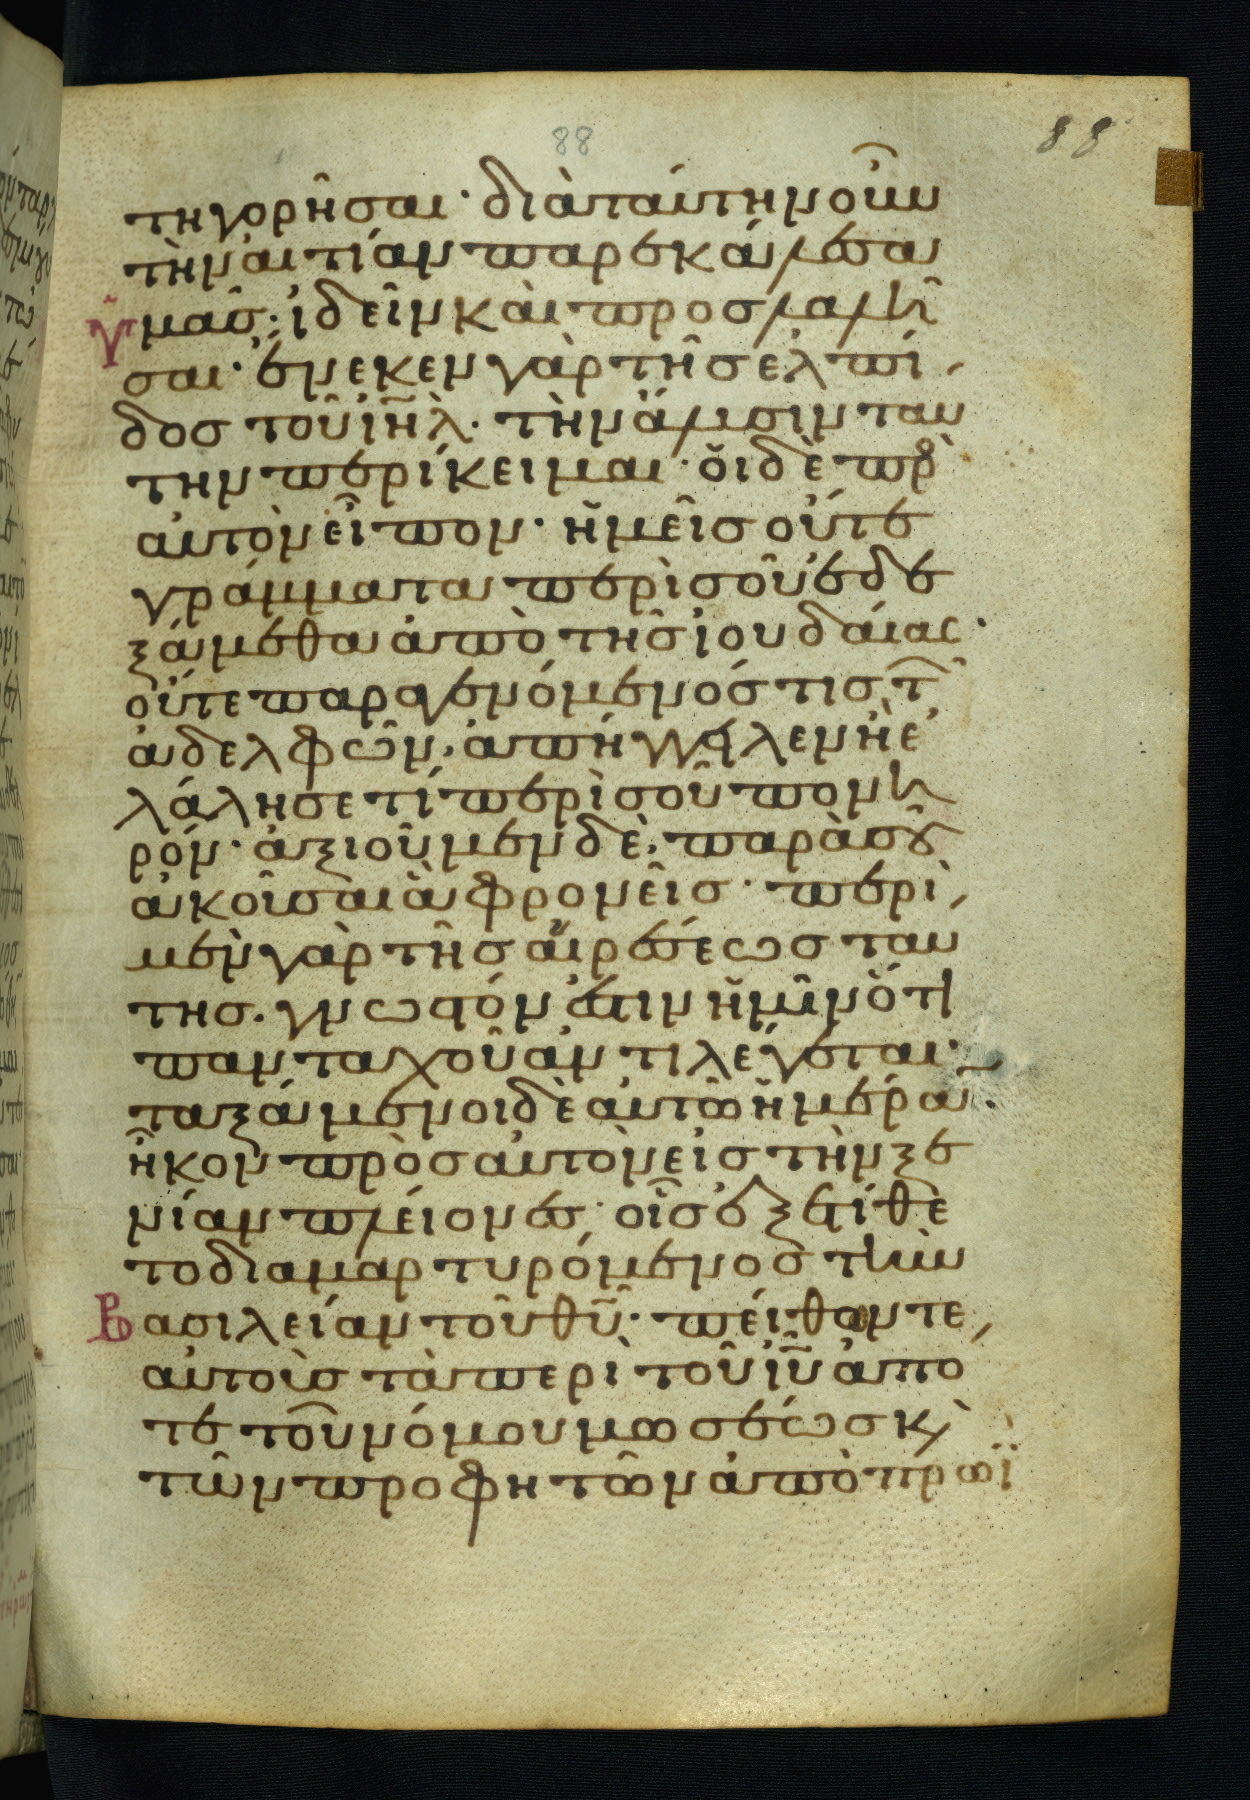 88
88
τηγορῆσαι· διὰ ταύτην οὖν
τὴν αἰτίαν παρεκάλεσα
ὑμᾶς· ἰδεῖν καὶ προσλαλῆ
σαι· ἕνεκεν γὰρ τῆς ἐλπί
δος τοῦ ἰη̅λ· τὴν ἅλυσιν ταύ
την περίκειμαι· ὁι δὲ πρὸ
αὐτὸν εἶπον· ἡμεῖς οὔτε
γράμματα περὶ σοῦ ἐδε
ξάμεθα ἀπὸ τῆς ἰουδάιας·
οὔτε παραγενόμενός τις τῶν
ἀδελφῶν, ἀπήγγειλεν ἢ ἐ
λάλησέ τί περὶ σοῦ πονη
ρόν· ἀξιοῦμεν δὲ, παρὰ σοῦ
ἀκοῦσαι ἃ φρονεῖς· περὶ
μὲν γὰρ τῆς αἱρέσεως ταύ
της· γνωστόν ἐστιν ἡμῖν ὅτι
πανταχοῦ ἀντιλέγεται·
ταξάμενοι δὲ αὐτῶ ἡμέραν·
ἧκον πρὸς αὐτὸν εἰς τὴν ξε
νίαν πλείονες· οἷς ἐξετίθε
το διαμαρτυρόμενος τὴν
βασιλείαν τοῦ θυ̅· πείθων τε
αὐτοὺς τὰ περὶ τοῦ ἰυ̅ ἀπό
τε τοῦ νόμου μωσέως κ̀
τῶν προφητῶν ἀπὸ πρωῒ